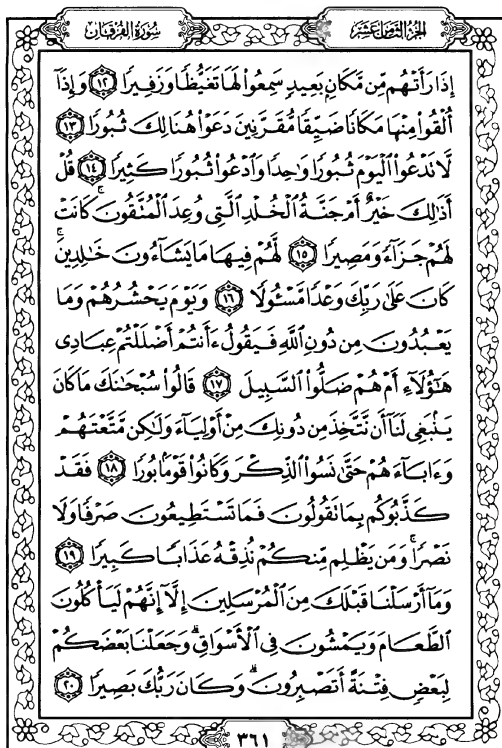 سُورَةُ الفُرْقَان
الجُزْءُ الثَّامِنَ عَشَرَ
إِذَا رَأَتْهُم مِّن مَّكَانٍ بَعِيدٍ سَمِعُوا۟ لَهَا تَغَيُّظًا وَزَفِيرًا ١٢ وَإِذَآ
أُلْقُوا۟ مِنْهَا مَكَانًا ضَيِّقًا مُّقَرَّنِينَ دَعَوْا۟ هُنَالِكَ ثُبُورًا ١٣
لَّا تَدْعُوا۟ ٱلْيَوْمَ ثُبُورًا وَٰحِدًا وَٱدْعُوا۟ ثُبُورًا كَثِيرًا ١٤ قُلْ
أَذَٰلِكَ خَيْرٌ أَمْ جَنَّةُ ٱلْخُلْدِ ٱلَّتِى وُعِدَ ٱلْمُتَّقُونَ ۚ كَانَتْ
لَهُمْ جَزَآءً وَمَصِيرًا ١٥ لَّهُمْ فِيهَا مَا يَشَآءُونَ خَٰلِدِينَ ۚ
كَانَ عَلَىٰ رَبِّكَ وَعْدًا مَّسْـُٔولًا ١٦ وَيَوْمَ يَحْشُرُهُمْ وَمَا
يَعْبُدُونَ مِن دُونِ ٱللَّهِ فَيَقُولُ ءَأَنتُمْ أَضْلَلْتُمْ عِبَادِى
هَٰٓؤُلَآءِ أَمْ هُمْ ضَلُّوا۟ ٱلسَّبِيلَ ١٧ قَالُوا۟ سُبْحَٰنَكَ مَا كَانَ
يَنۢبَغِى لَنَآ أَن نَّتَّخِذَ مِن دُونِكَ مِنْ أَوْلِيَآءَ وَلَٰكِن مَّتَّعْتَهُمْ
وَءَابَآءَهُمْ حَتَّىٰ نَسُوا۟ ٱلذِّكْرَ وَكَانُوا۟ قَوْمًۢا بُورًا ١٨ فَقَدْ
كَذَّبُوكُم بِمَا تَقُولُونَ فَمَا تَسْتَطِيعُونَ صَرْفًا وَلَا
نَصْرًا ۚ وَمَن يَظْلِم مِّنكُمْ نُذِقْهُ عَذَابًا كَبِيرًا ١٩
وَمَآ أَرْسَلْنَا قَبْلَكَ مِنَ ٱلْمُرْسَلِينَ إِلَّآ إِنَّهُمْ لَيَأْكُلُونَ
ٱلطَّعَامَ وَيَمْشُونَ فِى ٱلْأَسْوَاقِ ۗ وَجَعَلْنَا بَعْضَكُمْ
لِبَعْضٍ فِتْنَةً أَتَصْبِرُونَ ۗ وَكَانَ رَبُّكَ بَصِيرًا ٢٠
٣٦١